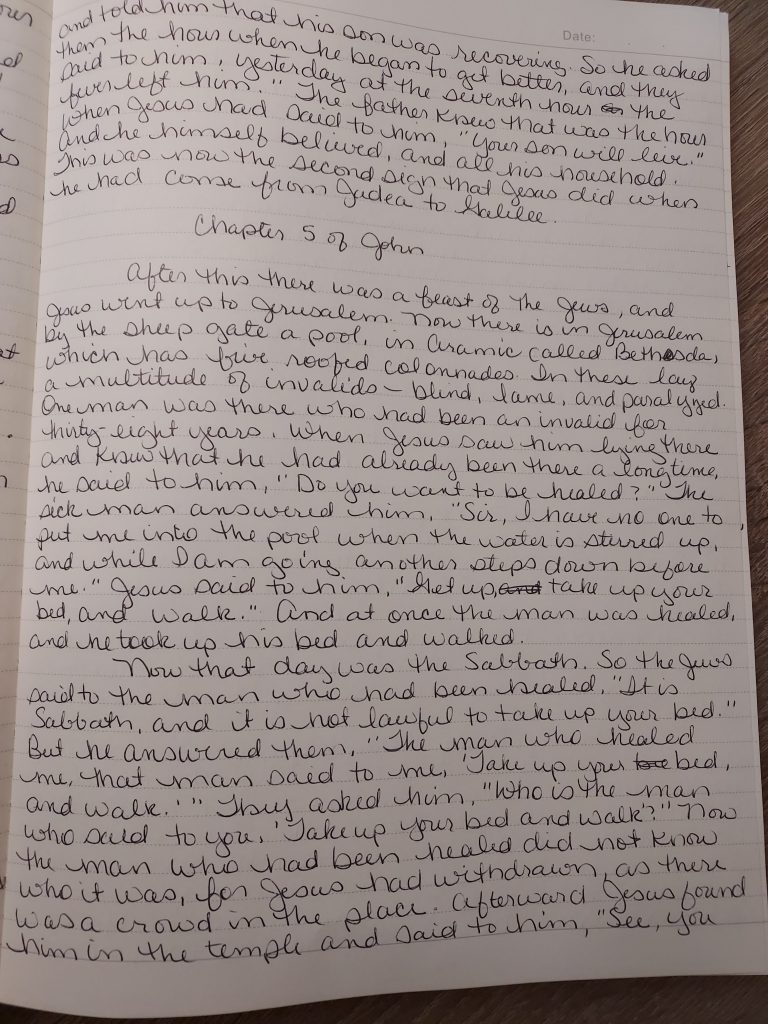 Date:
and told him that his son was recovering. So he asked
them the hour when he began to get better, and they
said to him, yesterday at the seventh hour the
fever left him." The father knew that was the hour
when Jesus had said to him, "Your son will live."
And he himself believed, and all his household.
This was now the second sign that Jesus did when
he had come from Judea to Galilee.
Chapter 5 of John
After this there was a feast of the Jews, and
Jesus went up to Jerusalem. Now there is in Jerusalem
by the sheep gate a pool, in aramic called Bethesda,
which has five roofed colonnades. In these lay
a multitude of invalids - blind, lame, and paralyzed.
One man was there who had been an invalid for
thirty-eight years. When Jesus saw him lying there
and knew that he had already been there a long time,
he said to him, "Do you want to be healed?" The
sick man answered him, "Sir, I have no one to
put me into the pool when the water is stirred up,
and while I am going another steps down before
me." Jesus said to him, "Get up, and take up your
bed, and walk." And at once the man was healed,
and he took up his bed and walked.
Now that day was the Sabbath. So the Jews
said to the man who had been healed, "It is
Sabbath, and it is not lawful to take up your bed."
But he answered them, "The man who healed
me, that man said to me, 'Take up your bed,
and walk.'" They asked him, "Who is the man
who said to you, 'Take up your bed and walk'?" Now
the man who had been healed did not know
who it was, for Jesus had withdrawn, as there
was a crowd in the place. Afterward Jesus found
him in the temple and said to him, "See, you